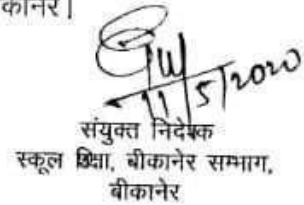 कानेर।
11/5/2020
संयुक्त निदेशक
स्कूल शिक्षा, बीकानेर सम्भाग,
बीकानेर